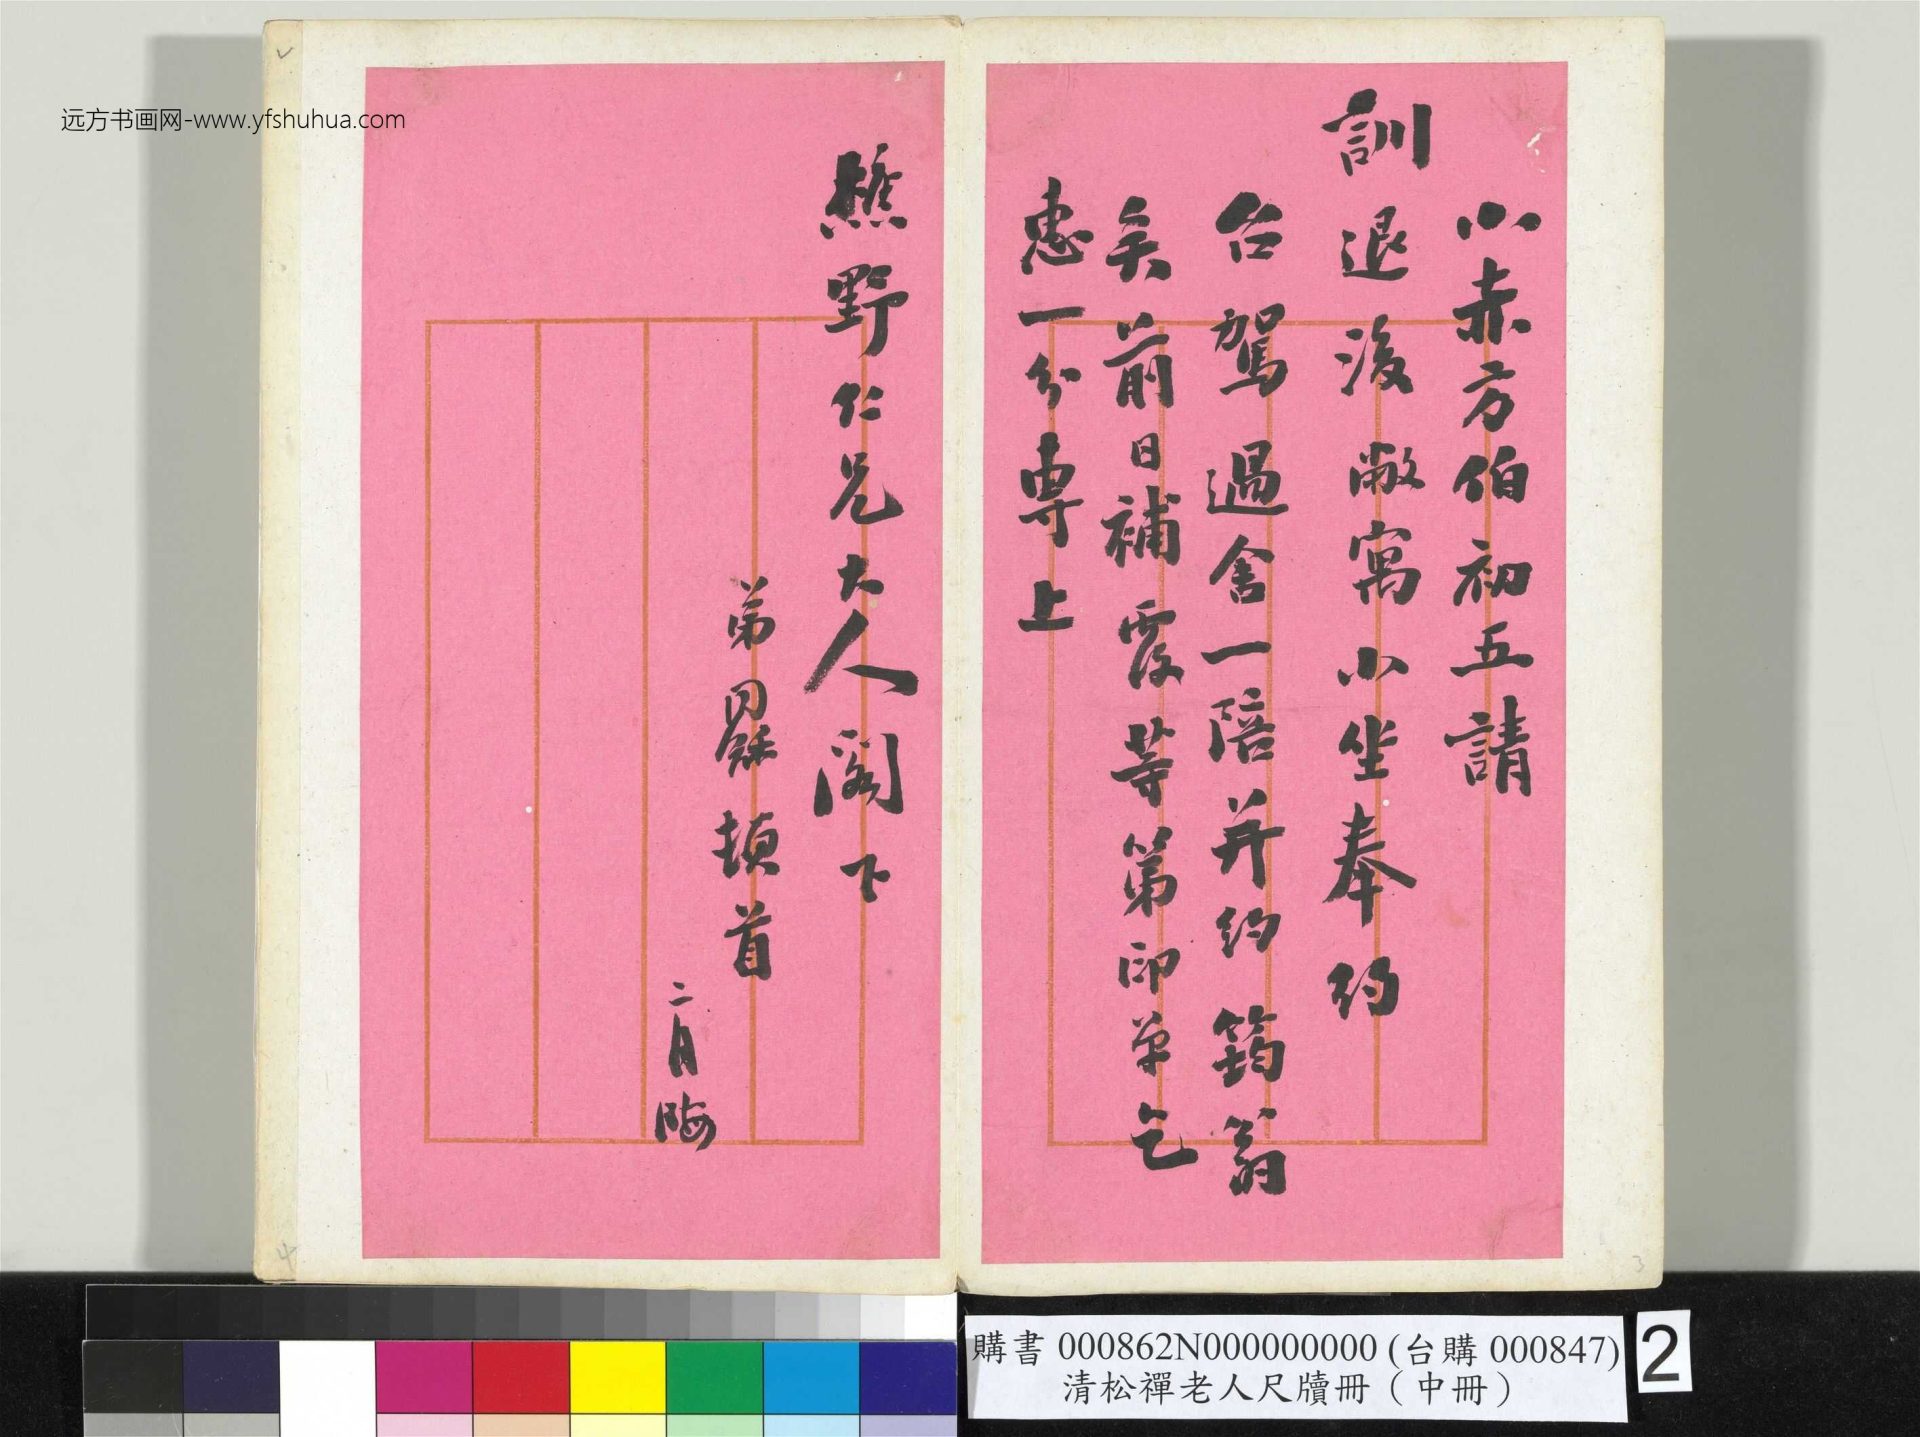 远方书画网-www.yfshuhua.com
小赤方伯初五請
訓退後敝寓小坐奉約
台駕過舍一陪并約筠翁
矣前日補霞等第印单乞
惠一分專上
樵野仁兄大人阁下
弟同龢頓首
二月晦
購書 000862N000000000 (台購 000847)
清松禪老人尺牘冊（中冊）
2
3